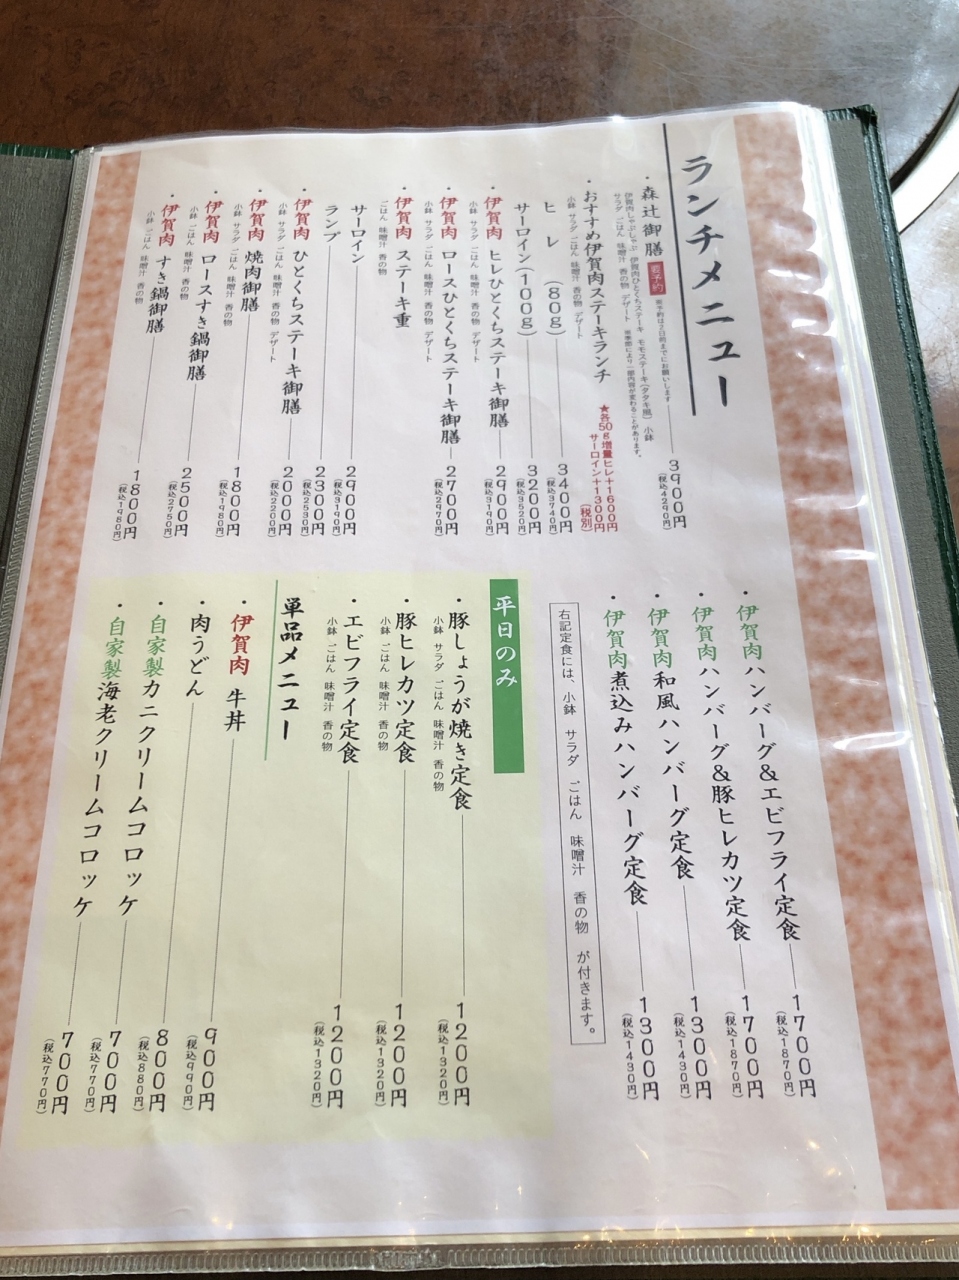 ランチメニュー
・森辻御膳 要予約 要予約は2日前までにお願いします 3900円
(税込4290円)
伊賀肉しゃぶしゃぶ 伊賀肉ひとくちステーキ モモステーキ(タタキ風) 小鉢
サラダ ごはん 味噌汁 香の物 デザート ※季節により一部内容が変わることがあります。
・おすすめ伊賀肉ステーキランチ
小鉢 サラダ ごはん 味噌汁 香の物 デザート
★各50g増量ヒレ+1600円
サーロイン+1300円
(税別)
ヒレ(80g) 3400円
(税込3740円)
サーロイン(100g) 3200円
(税込3520円)
・伊賀肉 ヒレひとくちステーキ御膳 2900円
(税込3190円)
小鉢 サラダ ごはん 味噌汁 香の物 デザート
・伊賀肉 ロースひとくちステーキ御膳 2700円
(税込2970円)
小鉢 サラダ ごはん 味噌汁 香の物 デザート
・伊賀肉 ステーキ重
ごはん 味噌汁 香の物
サーロイン 2900円
(税込3190円)
ランプ 2300円
(税込2530円)
・伊賀肉 ひとくちステーキ御膳 2000円
(税込2200円)
小鉢 サラダ ごはん 味噌汁 香の物 デザート
・伊賀肉 焼肉御膳 1800円
(税込1980円)
小鉢 サラダ ごはん 味噌汁 香の物
・伊賀肉 ロースすき鍋御膳 2500円
(税込2750円)
小鉢 ごはん 味噌汁 香の物
・伊賀肉 すき鍋御膳 1800円
(税込1980円)
小鉢 ごはん 味噌汁 香の物
・伊賀肉 ハンバーグ&エビフライ定食 1700円
(税込1870円)
・伊賀肉 ハンバーグ&豚ヒレカツ定食 1700円
(税込1870円)
・伊賀肉 和風ハンバーグ定食 1300円
(税込1430円)
・伊賀肉煮込みハンバーグ定食 1300円
(税込1430円)
右記定食には、小鉢 サラダ ごはん 味噌汁 香の物 が付きます。
平日のみ
・豚しょうが焼き定食 1200円
(税込1320円)
小鉢 サラダ ごはん 味噌汁 香の物
・豚ヒレカツ定食 1200円
(税込1320円)
小鉢 ごはん 味噌汁 香の物
・エビフライ定食 1200円
(税込1320円)
小鉢 ごはん 味噌汁 香の物
単品メニュー
・伊賀肉 牛丼 900円
(税込990円)
・肉うどん 800円
(税込880円)
・自家製カニクリームコロッケ 700円
(税込770円)
・自家製海老クリームコロッケ 700円
(税込770円)